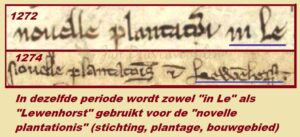 1272
novelle plantacōī in Le
1274
novelle plantatiōis
In dezelfde periode wordt zowel "in Le" als
"Lewenhorst" gebruikt voor de "novelle
plantationis" (stichting, plantage, bouwgebied)